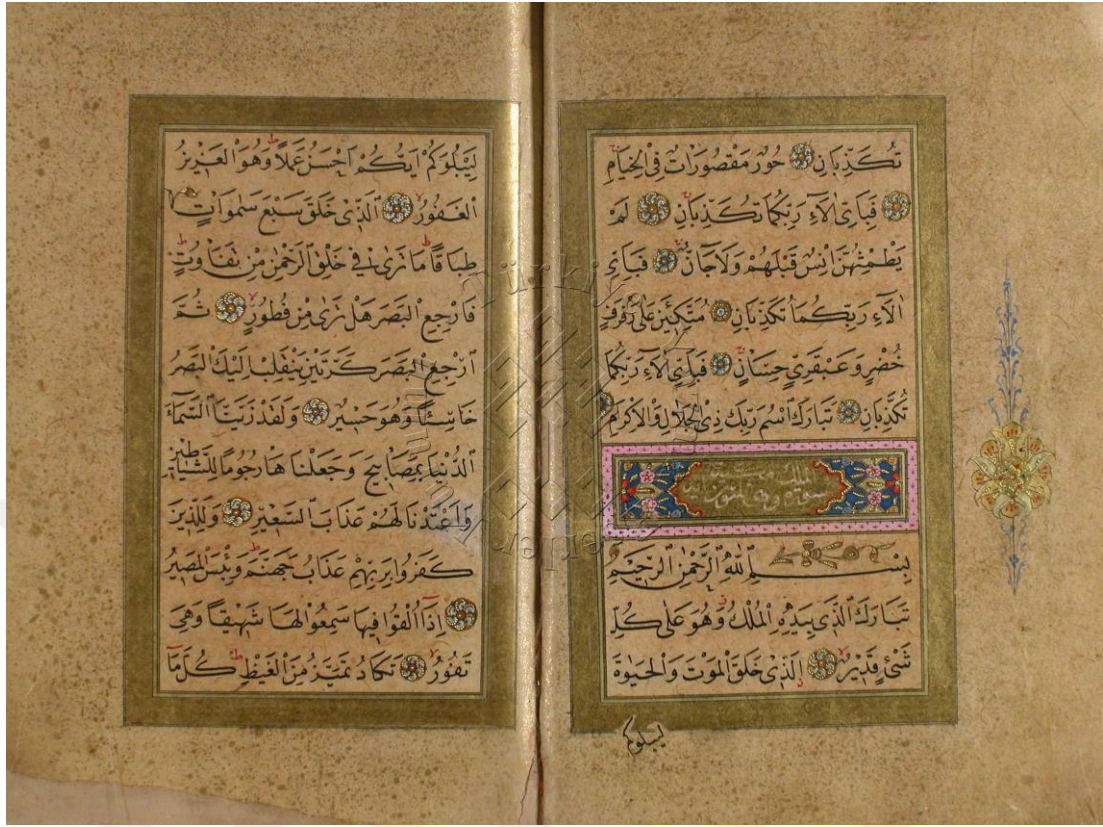 تُكَذِّبَانِ حُورٌ مَقْصُورَاتٌ فِي الْخِيَامِ
فَبِاَيِّ اٰلَآءِ رَبِّكُمَا تُكَذِّبَانِ لَمْ
يَطْمِثْهُنَّ اِنْسٌ قَبْلَهُمْ وَلَا جَآنٌّ فَبِاَيِّ
اٰلَآءِ رَبِّكُمَا تُكَذِّبَانِ مُتَّكِئِينَ عَلٰى رَفْرَفٍ
خُضْرٍ وَعَبْقَرِيٍّ حِسَانٍ فَبِاَيِّ اٰلَآءِ رَبِّكُمَا
تُكَذِّبَانِ تَبَارَكَ اسْمُ رَبِّكَ ذِي الْجَلَالِ وَالْاِكْرَامِ
سورة الملك
بِسْمِ اللّٰهِ الرَّحْمٰنِ الرَّحِيمِ
تَبَارَكَ الَّذِي بِيَدِهِ الْمُلْكُ وَهُوَ عَلٰى كُلِّ
شَيْءٍ قَدِيرٌ اَلَّذِي خَلَقَ الْمَوْتَ وَالْحَيٰوةَ
ليبلوكم
لِيَبْلُوَكُمْ اَيُّكُمْ اَحْسَنُ عَمَلًا وَهُوَ الْعَزِيزُ
الْغَفُورُ اَلَّذِي خَلَقَ سَبْعَ سَمٰوَاتٍ
طِبَاقًا مَا تَرٰى فِي خَلْقِ الرَّحْمٰنِ مِنْ تَفَاوُتٍ
فَارْجِعِ الْبَصَرَ هَلْ تَرٰى مِنْ فُطُورٍ ثُمَّ
ارْجِعِ الْبَصَرَ كَرَّتَيْنِ يَنْقَلِبْ اِلَيْكَ الْبَصَرُ
خَاسِئًا وَهُوَ حَسِيرٌ وَلَقَدْ زَيَّنَّا السَّمَآءَ
الدُّنْيَا بِمَصَابِيحَ وَجَعَلْنَاهَا رُجُومًا لِلشَّيَاطِينِ
وَاَعْتَدْنَا لَهُمْ عَذَابَ السَّعِيرِ وَلِلَّذِينَ
كَفَرُوا بِرَبِّهِمْ عَذَابُ جَهَنَّمَ وَبِئْسَ الْمَصِيرُ
اِذَآ اُلْقُوا فِيهَا سَمِعُوا لَهَا شَهِيقًا وَهِيَ
تَفُورُ تَكَادُ تَمَيَّزُ مِنَ الْغَيْظِ كُلَّمَآ
Türkiye